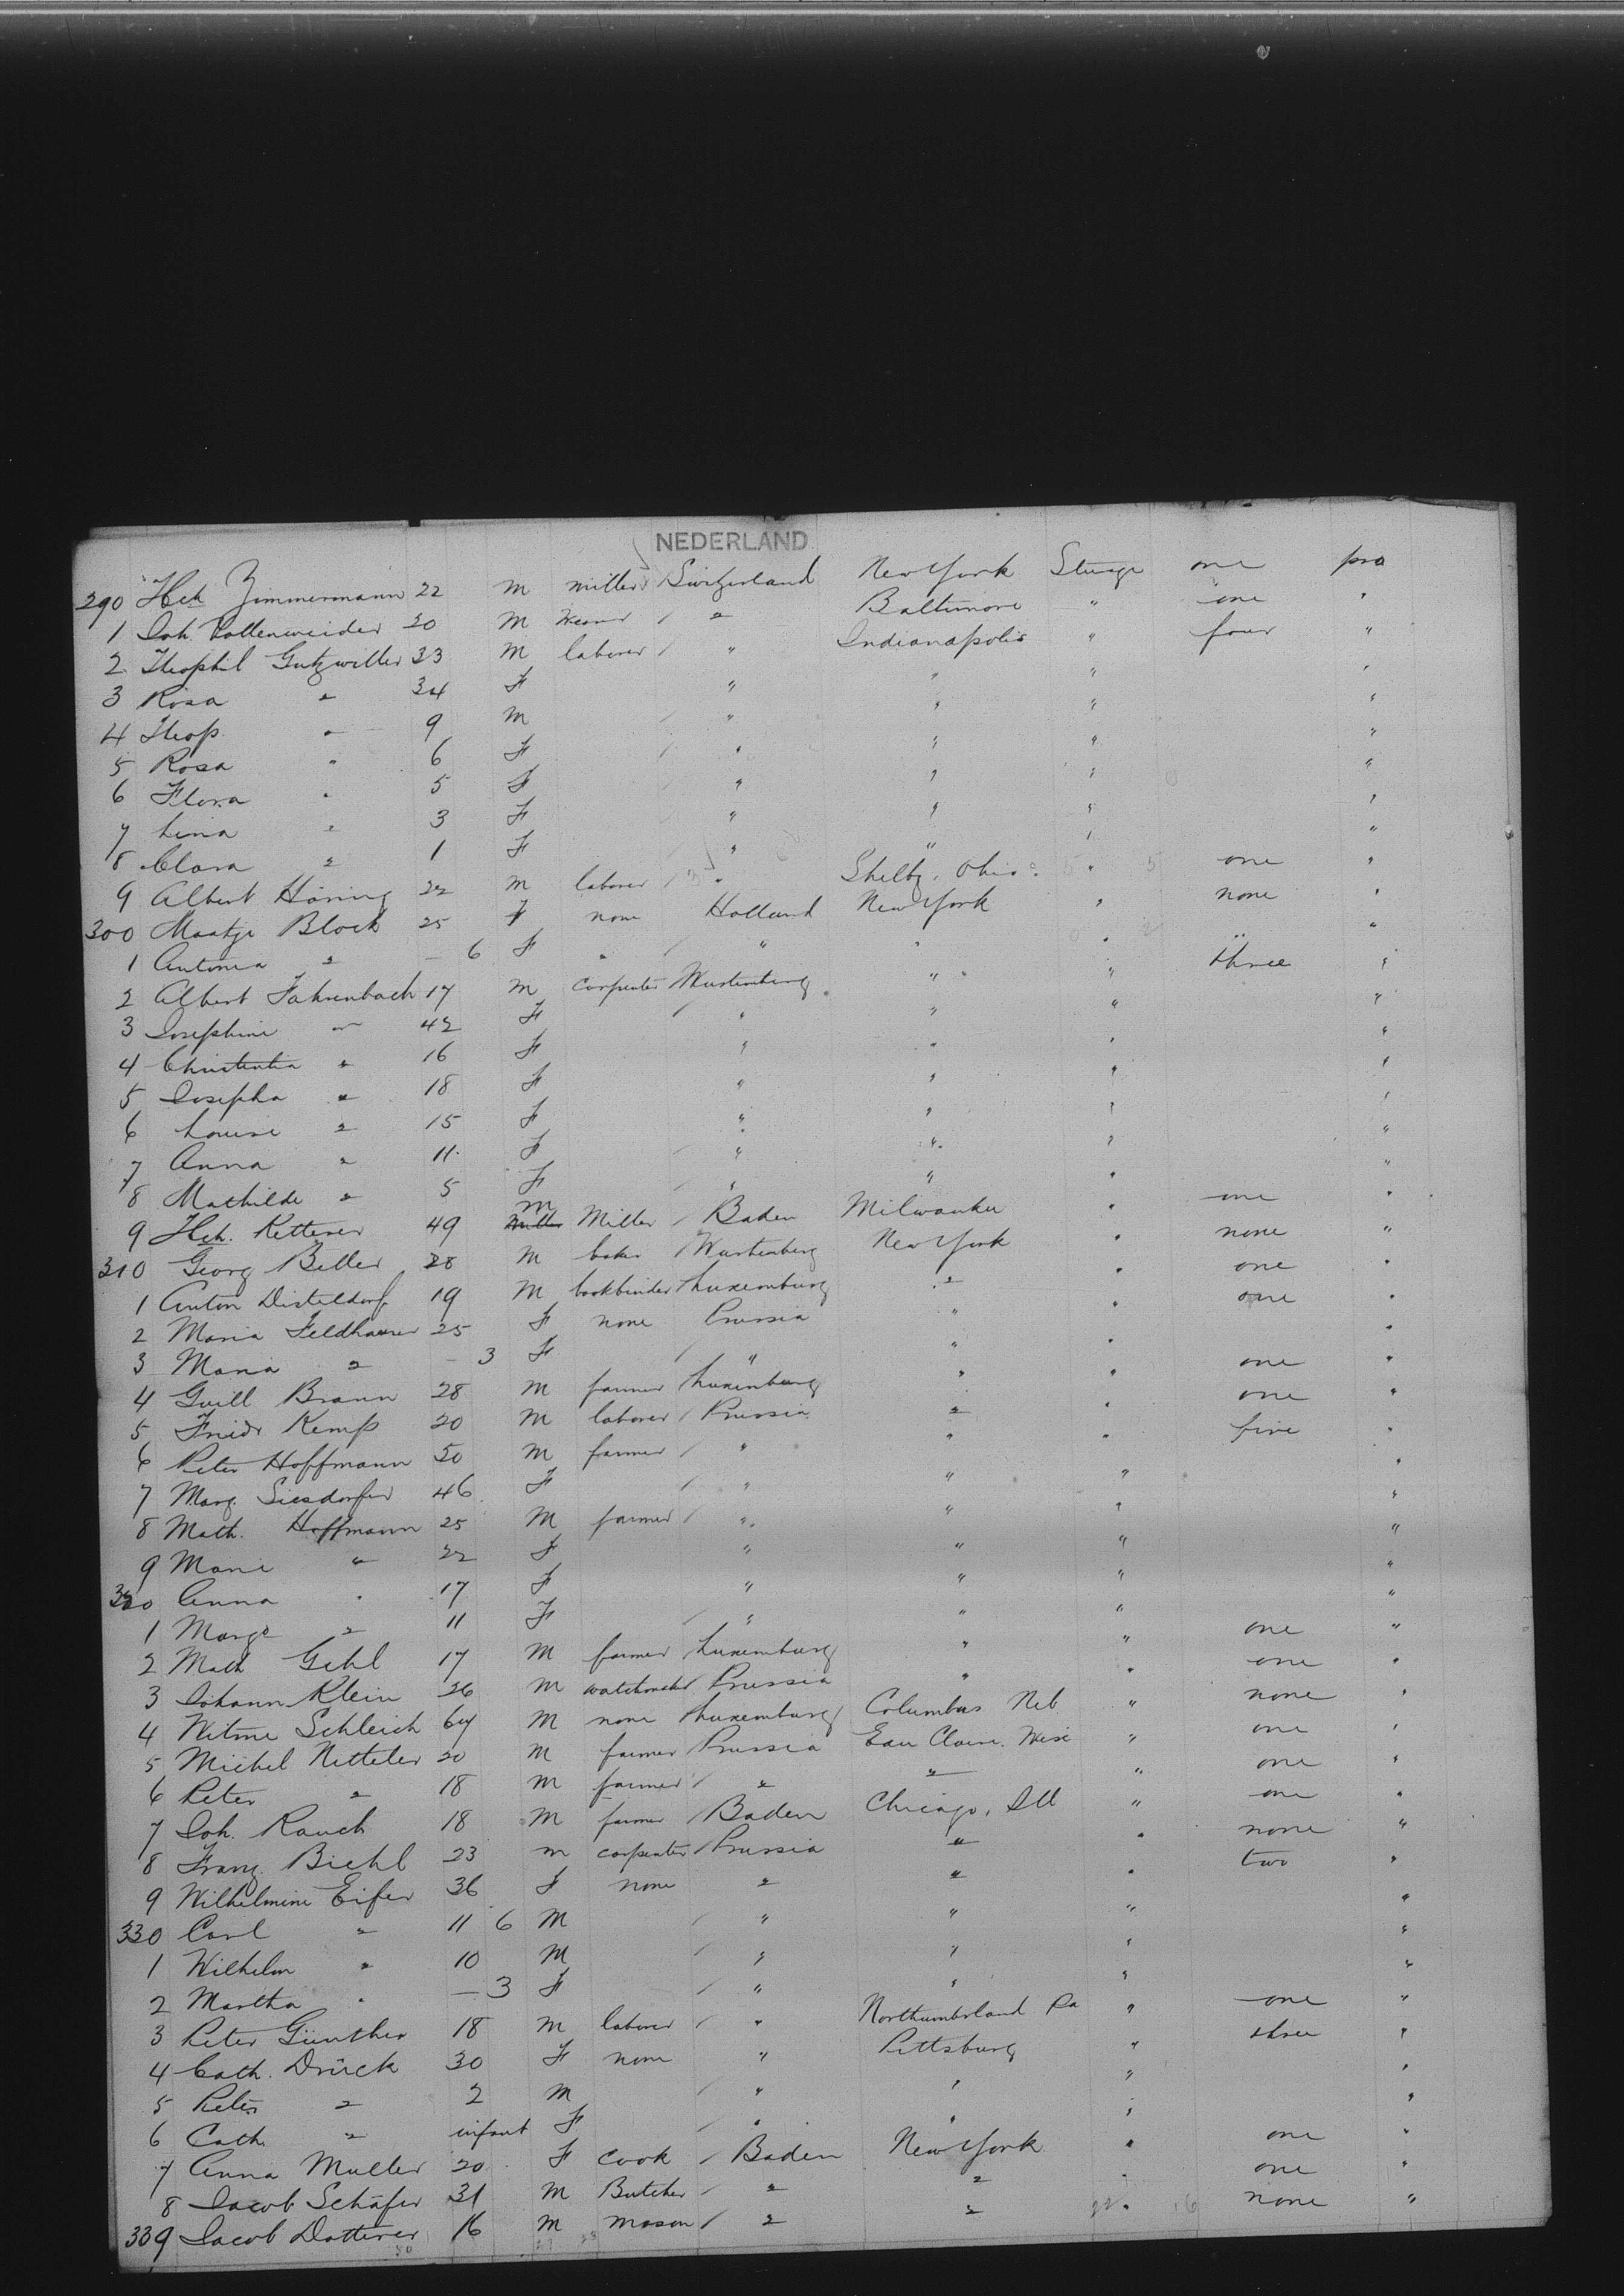 NEDERLAND
290 Hch Zimmermann 22 M miller Switzerland New York Steerge one pro
1 Joh. Vollenweider 20 M Weaver " Baltimore " one "
2 Theophil Gutzwiller 33 M laborer " Indianapolis " four "
3 Rosa " 34 F " " " "
4 Theop. " 9 M " " " "
5 Rosa " 6 F " " " "
6 Flora " 5 F " " " "
7 Lina " 3 F " " " "
8 Clara " 1 F " " " "
9 Albert Häring 22 M laborer " Shelby, Ohio. " one "
300 Maatje Block 25 F none Holland New York " none "
1 Antonia " — 6 F " " " " "
2 Albert Fahrenbach 17 M carpenter Wurtemberg " " three "
3 Josephine " 42 F " " " "
4 Christentia " 16 F " " " "
5 Josepha " 18 F " " " "
6 Louise " 15 F " " " "
7 Anna " 11 F " " " "
8 Mathilde " 5 F " " " "
9 Hch. Ketterer 49 M Miller Baden Milwaukee " one "
310 Georg Beller 28 M baker Wurtemberg New York " none "
1 Anton Disteldorf 19 M bookbinder Luxemburg " " one "
2 Maria Feldhauser 25 F none Prussia " " one "
3 Maria " — 3 F " " " "
4 Guill Braun 28 M farmer Luxemburg " " one "
5 Friedr Kemp 20 M laborer Prussia " " one "
6 Peter Hoffmann 50 M farmer " " " five "
7 Marg. Siesdorfer 46 F " " " "
8 Math. Hoffmann 25 M farmer " " " "
9 Marie " 22 F " " " "
320 Anna " 17 F " " " "
1 Margr " 11 F " " " "
2 Math Gehl 17 M farmer Luxemburg " " one "
3 Johann Klein 26 M watchmaker Prussia " " one "
4 Schleich 64 M none Luxemburg Columbus Neb " none "
5 Michel Netteler 20 M farmer Prussia Eau Claire. Wisc " one "
6 Peter " 18 M farmer " " " one "
7 Joh. Rauch 18 M farmer Baden Chicago, Ill " one "
8 Franz Biehl 23 M carpenter Prussia " " none "
9 Wilhelmine Eifer 36 F none " " " two "
330 Carl " 11 6 M " " " "
1 Wilhelm " 10 M " " " "
2 Martha " — 3 F " " " "
3 Peter Günther 18 M laborer " Northumberland Pa " one "
4 Cath. Drück 30 F none " Pittsburg " three "
5 Peter " 2 M " " " "
6 Cath. " infant F " " " "
7 Anna Muller 20 F Cook Baden New York " one "
8 Jacob Schäfer 31 M Butcher " " " one "
339 Jacob Dotterer 16 M Mason " " " none "